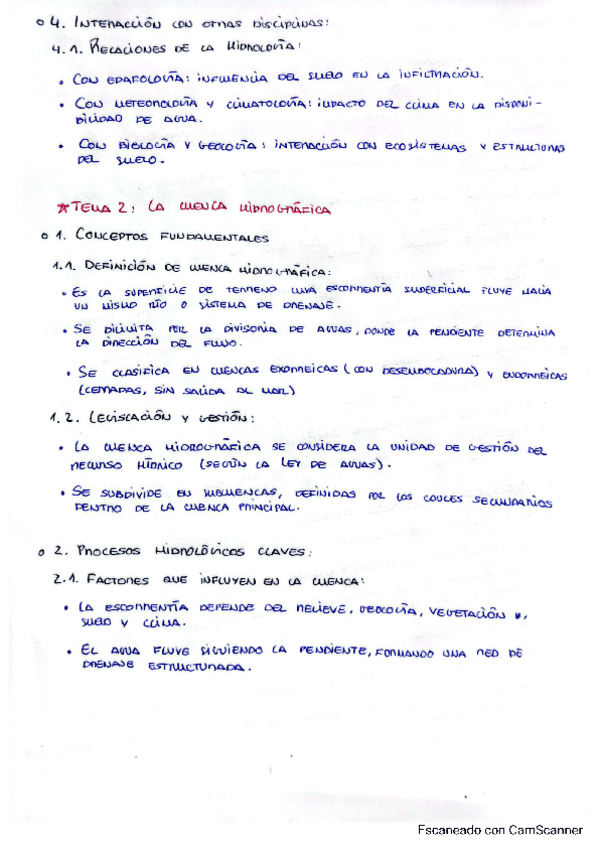 o 4. INTERACCIÓN CON OTRAS DISCIPLINAS:
4.1. RELACIONES DE LA HIDROLOGÍA:
• CON EDAFOLOGÍA: INFLUENCIA DEL SUELO EN LA INFILTRACIÓN.
• CON METEOROLOGÍA Y CLIMATOLOGÍA: IMPACTO DEL CLIMA EN LA DISPONI-
BILIDAD DE AGUA.
• CON BIOLOGÍA Y GEOLOGÍA: INTERACCIÓN CON ECOSISTEMAS Y ESTRUCTURAS
DEL SUELO.
★TEMA 2: LA CUENCA HIDROGRÁFICA
o 1. CONCEPTOS FUNDAMENTALES
1.1. DEFINICIÓN DE CUENCA HIDROGRÁFICA:
• ES LA SUPERFICIE DE TERRENO CUYA ESCORRENTÍA SUPERFICIAL FLUYE HACIA
UN MISMO RÍO O SISTEMA DE DRENAJE.
• SE DILIMITA POR LA DIVISORIA DE AGUAS, DONDE LA PENDIENTE DETERMINA
LA DIRECCIÓN DEL FLUJO.
• SE CLASIFICA EN CUENCAS EXORREICAS (CON DESEMBOCADURA) Y ENDORREICAS
(CERRADAS, SIN SALIDA AL MAR)
1.2. LEGISLACIÓN Y GESTIÓN:
• LA CUENCA HIDROGRÁFICA SE CONSIDERA LA UNIDAD DE GESTIÓN DEL
RECURSO HÍDRICO (SEGÚN LA LEY DE AGUAS).
• SE SUBDIVIDE EN SUBCUENCAS, DEFINIDAS POR LOS CAUCES SECUNDARIOS
DENTRO DE LA CUENCA PRINCIPAL.
o 2. PROCESOS HIDROLÓGICOS CLAVES:
2.1. FACTORES QUE INFLUYEN EN LA CUENCA:
• LA ESCORRENTÍA DEPENDE DEL RELIEVE, GEOLOGÍA, VEGETACIÓN,
SUELO Y CLIMA.
• EL AGUA FLUYE SIGUIENDO LA PENDIENTE, FORMANDO UNA RED DE
DRENAJE ESTRUCTURADA.
Escaneado con CamScanner